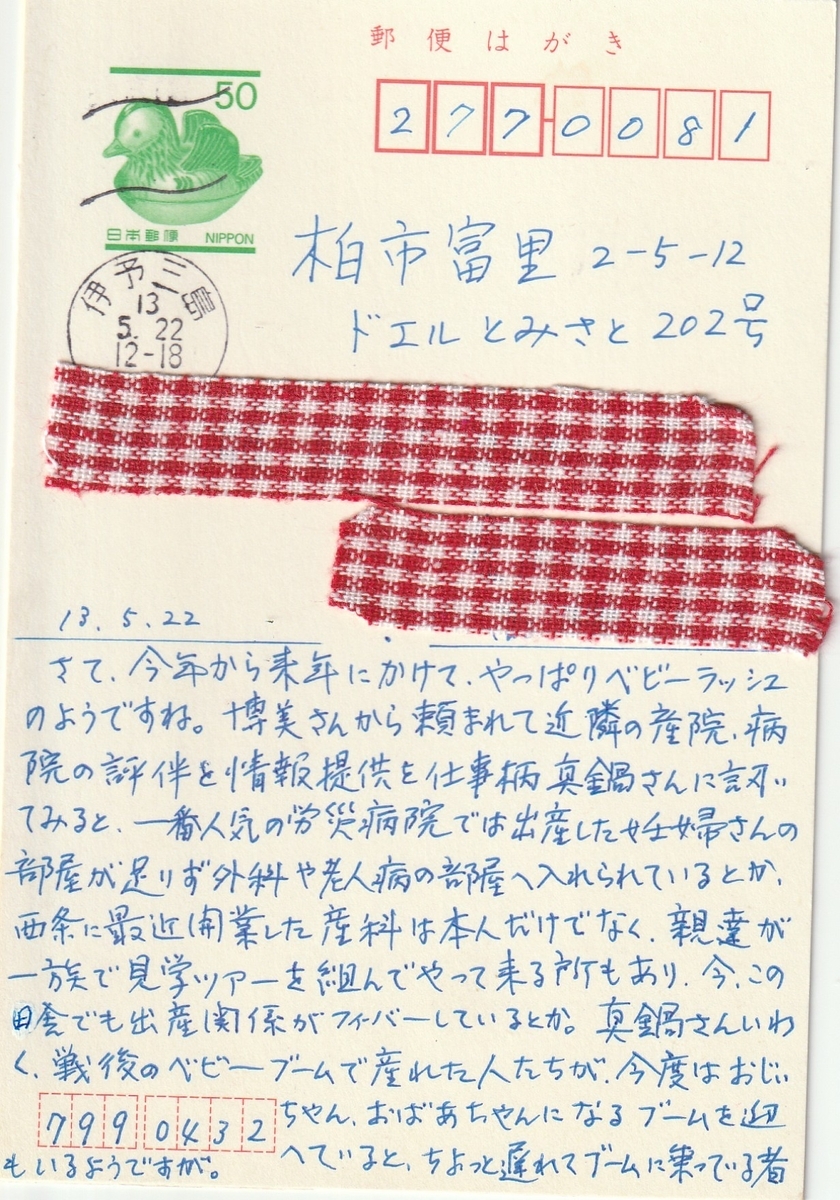 郵便はがき
50
日本郵便 NIPPON
277-0081
伊予三島
13
5.22
12-18
柏市富里 2-5-12
ドエルとみさと 202号
13.5.22
さて、今年から来年にかけて、やっぱりベビーラッシュ
のようですね。博美さんから頼まれて近隣の産院、病
院の評伴を情報提供を仕事柄真鍋さんに訊い
てみると、一番人気の労災病院では出産した妊婦さんの
部屋が足りず外科や老人病の部屋へ入れられているとか、
西条に最近開業した産科は本人だけでなく、親達が
一族で見学ツアーを組んでやって来る所もあり、今、この
田舎でも出産関係がフィーバーしているとか。真鍋さんいわ
く、戦後のベビーブームで産れた人たちが、今度はおじい
ちゃん、おばあちゃんになるブームを迎
へていると、ちょっと遅れてブームに乗っている者
もいるようですが。
799 0432